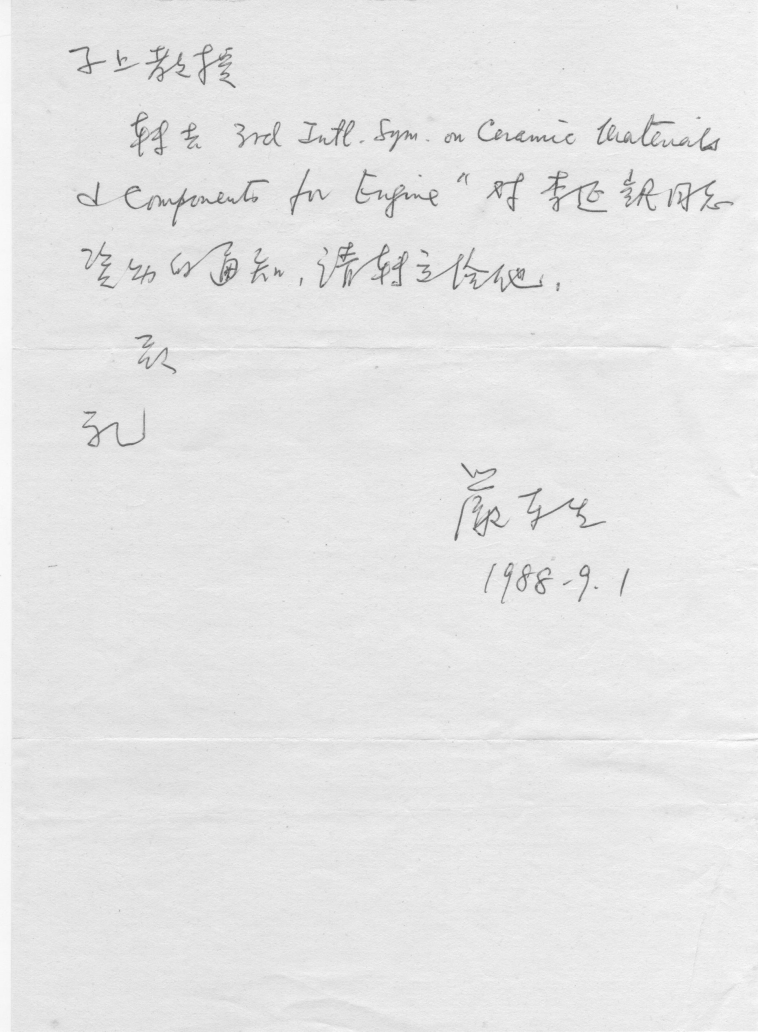 子上教授
转去 3rd Intl. Sym. on Ceramic Materials
& Components for Engine" 对李延同志
资助的通知,请转交给他.
致
礼
嚴东生
1988-9.1